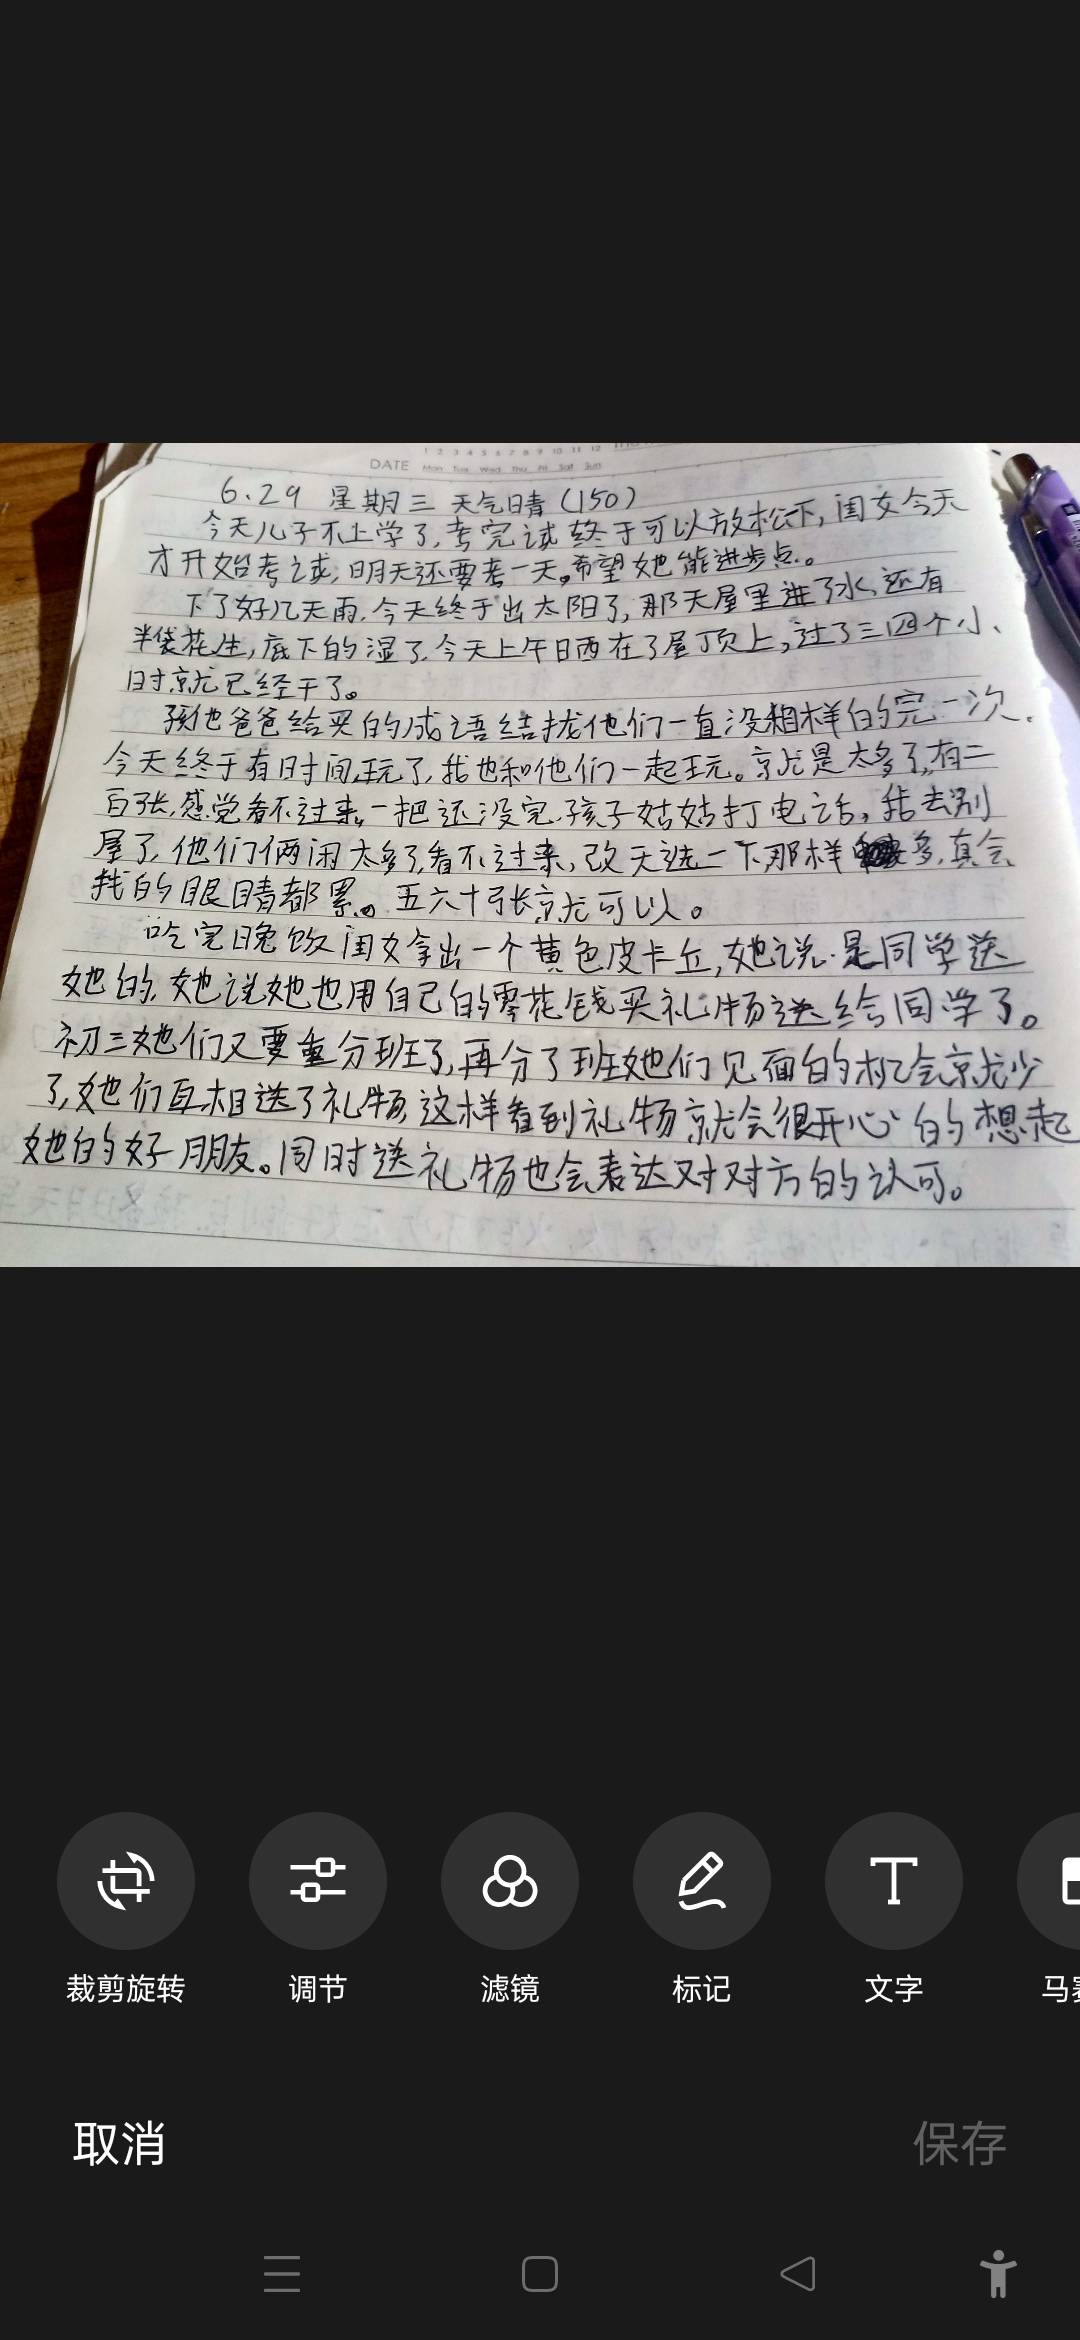 DATE
1 2 3 4 5 6 7 8 9 10 11 12
Mon Tue Wed Thu Fri Sat Sun
6.29 星期三 天气晴(150)
今天儿子不上学了,考完试终于可以放松下,闺女今天
才开始考试,明天还要考一天。希望她能进步点。
下了好几天雨,今天终于出太阳了,那天屋里进了水,还有
半袋花生,底下的湿了.今天上午晒在了屋顶上,过了三四个小
时就已经干了。
孩他爸爸给买的成语结拢他们一直没粗样的完一次.
今天终于有时间玩了,我也和他们一起玩。就是太多了,有二
百张,感觉看不过来,一把还没完,孩子姑姑打电话,我去别
屋了,他们俩闲太多了,看不过来,改天选一下,那样多,真会
找的眼睛都累。五六十张就可以。
吃完晚饭闺女拿出一个黄色皮卡丘,她说是同学送
她的,她说她也用自己的零花钱买礼物送给同学了。
初三她们又要重分班了,再分了班她们见面的机会就少
了,她们互相送了礼物,这样看到礼物就会很开心的想起
她的好朋友。同时送礼物也会表达对对方的认可。
裁剪旋转 调节 滤镜 标记 文字
取消 保存